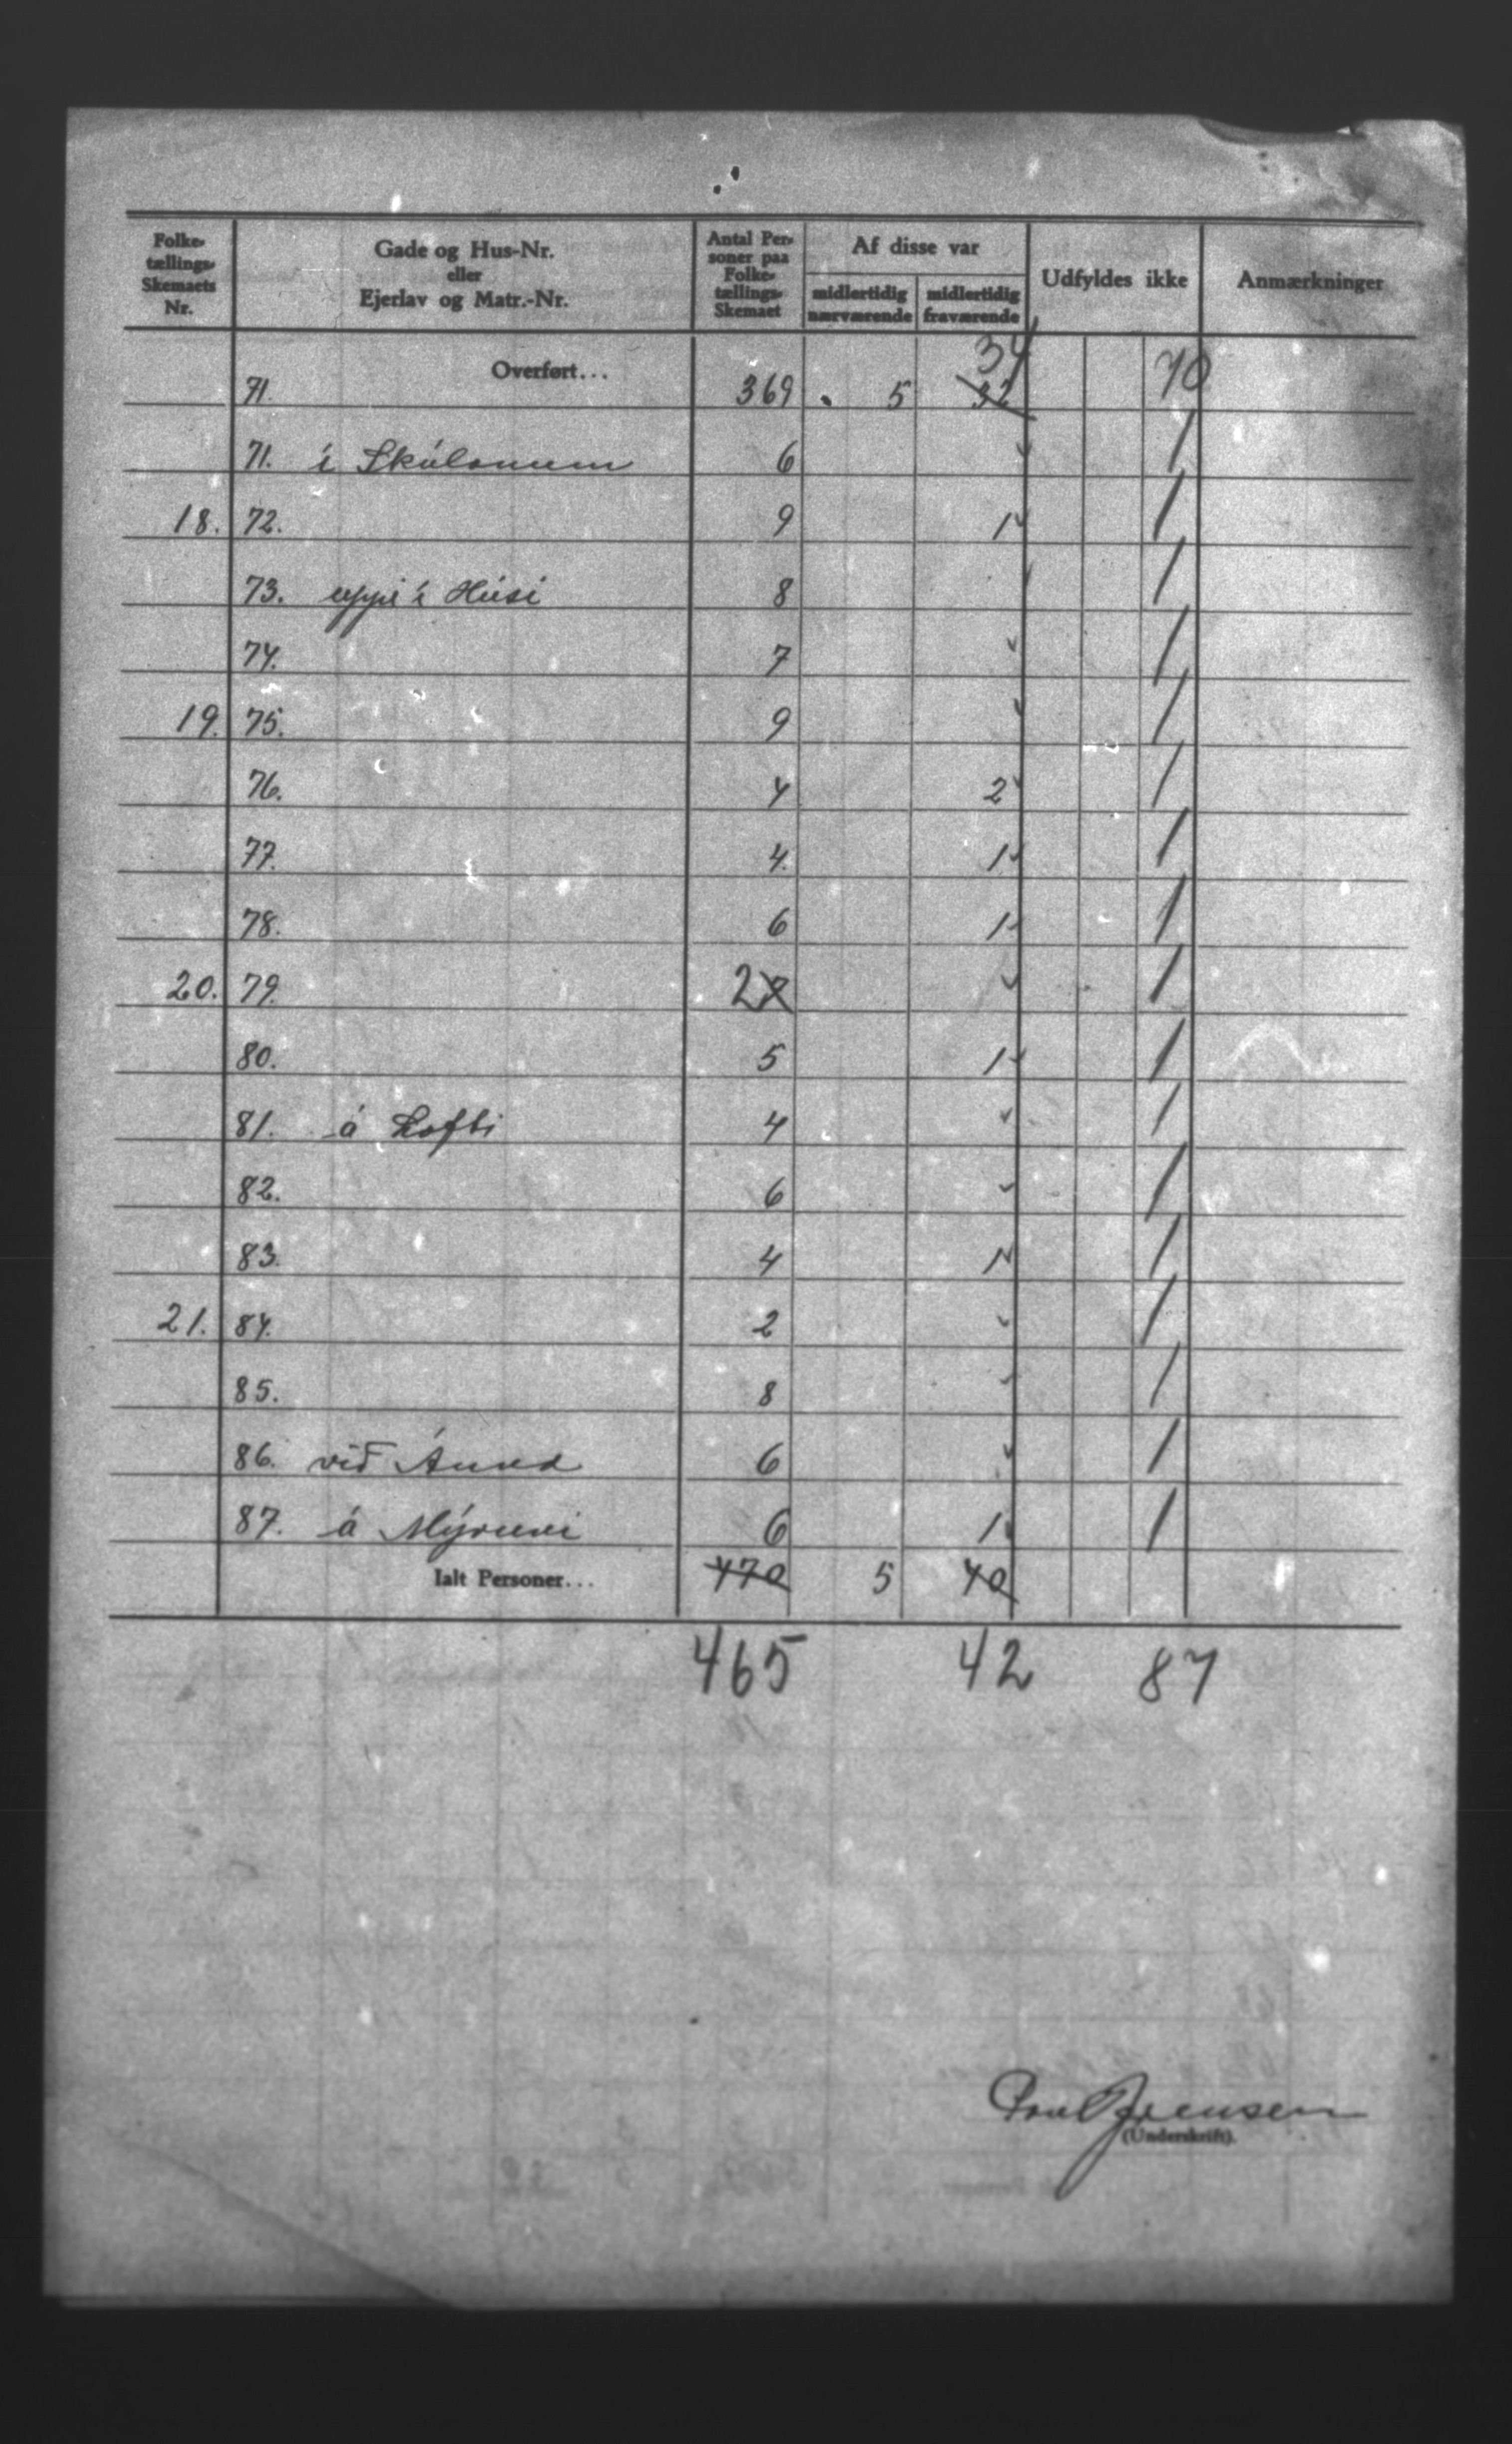 Folke-tællings-Skemaets Nr. | Gade og Hus-Nr. eller Ejerlav og Matr.-Nr. | Antal Personer paa Folke-tællings-Skemaet | Af disse var midlertidig nærværende | midlertidig fraværende | Udfyldes ikke | Anmærkninger
71. Overført... 369 5 32 34 70
71. í Skúlonum 6 /
18. 72. 9 1 /
73. uppi í Húsi 8 /
74. 7 /
19. 75. 9 /
76. 4 2 /
77. 4. 1 /
78. 6 1 /
20. 79. 2 /
80. 5 1 /
81. á Lofti 4 /
82. 6 /
83. 4 1 /
21. 84. 2 /
85. 8 /
86. við Ánna 6 /
87. á Mýruni 6 1 /
Ialt Personer... 470 5 40
465 42 87
(Underskrift).